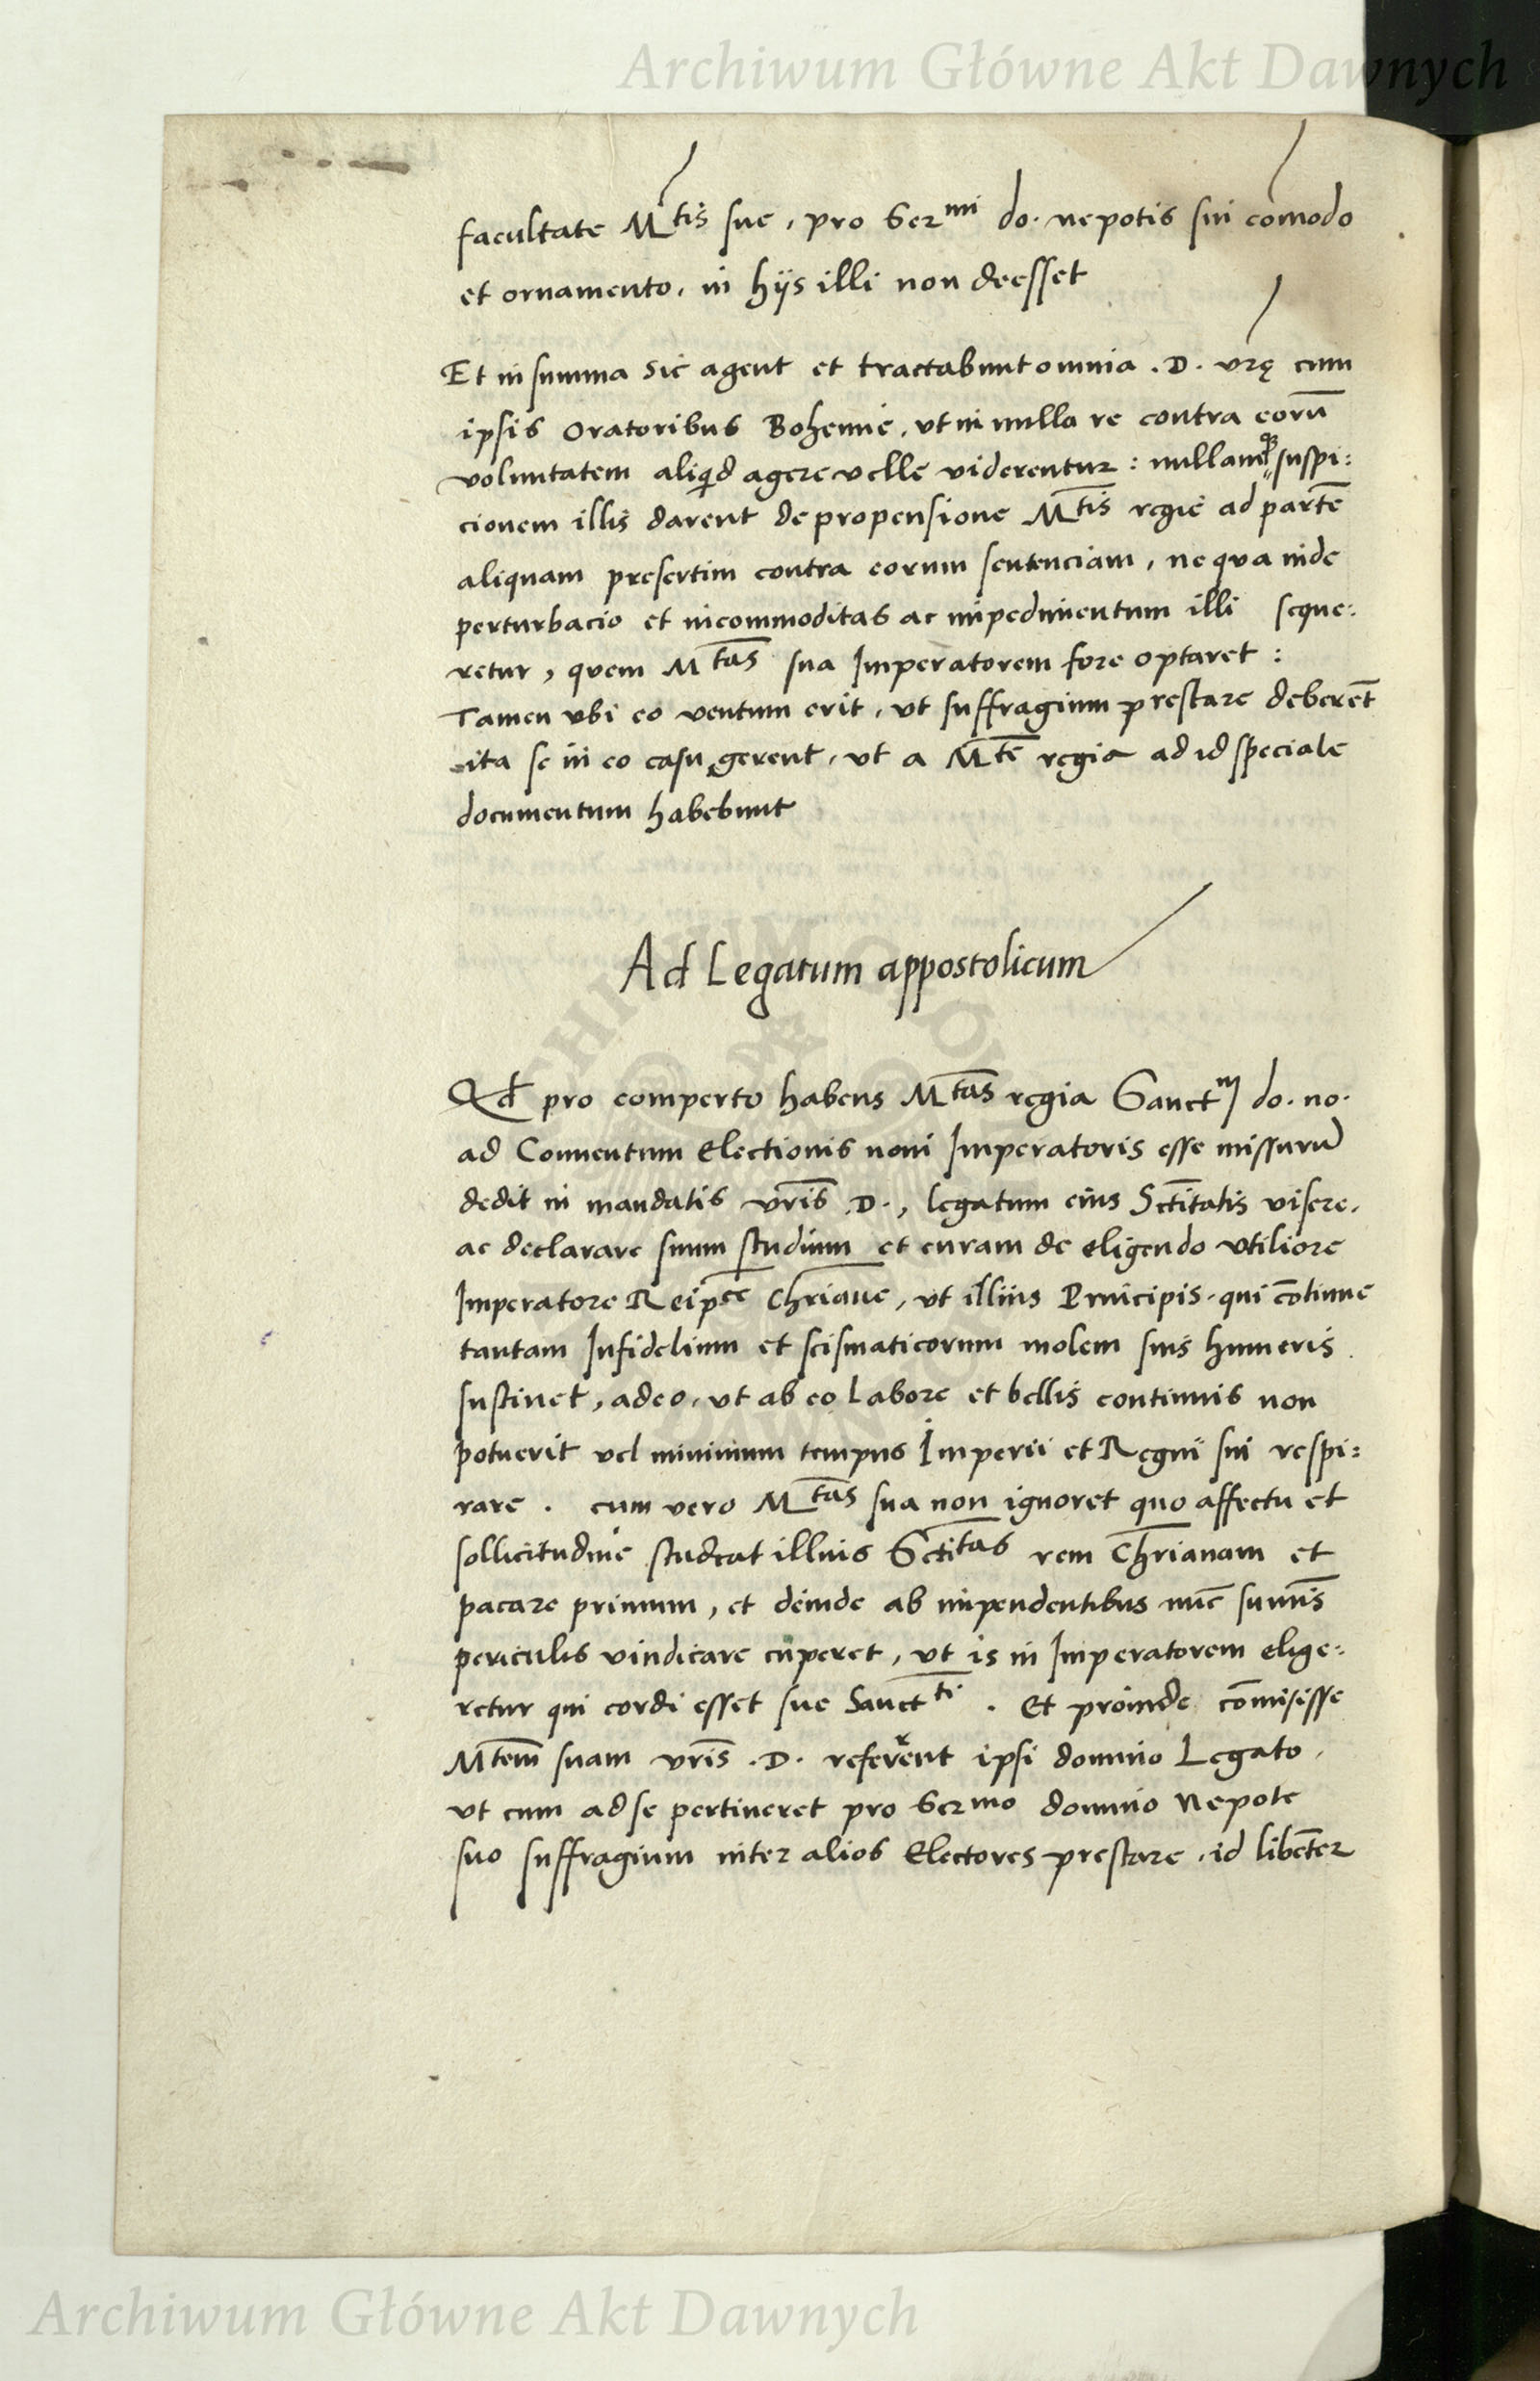 Archiwum Główne Akt Dawnych
facultate Mtis sue, pro Sermi do. nepotis sui comodo
et ornamento, in hijs illi non deesset
Et in summa sic agent et tractabunt omnia .D. vrę cum
ipsis Oratoribus Bohemie, vt in nulla re contra eorū
voluntatem aliqid agere velle viderentur : nullamqȝ suspi:
cionem illis darent de propensione Mtis regie ad partē
aliquam presertim contra eorum sentenciam, ne qua inde
perturbacio et incommoditas ac impedimentum illi seque:
retur, quem Mtas sua Imperatorem fore optaret :
Tamen vbi eo ventum erit, vt suffragium prestare deberēt
ita se in eo casu gerent, vt a Mte regia ad id speciale
documentum habebunt
Ad Legatum appostolicum
Qd pro comperto habens Mtas regia Sanctm do. no.
ad Conuentum Electionis noui Imperatoris esse missurū
dedit in mandatis vris .D., legatum eius Sctitatis visere,
ac declarare suum studium et curam de eligendo vtiliore
Imperatore Reipce Chriane, vt illius Principis, qui cōtinue
tantam Infidelium et scismaticorum molem suis humeris
sustinet, adeo, vt ab eo labore et bellis continuis non
potuerit vel minimum tempus Imperii et Regni sui respi:
rare . cum vero Mtas sua non ignoret quo affectu et
sollicitudine studeat illius Sctitas rem Chrianam et
pacare primum, et deinde ab impendentibus nūc summis
periculis vindicare cuperet, vt is in Imperatorem elige:
retur qui cordi esset sue Sanctti . Et proinde cōmisisse
Mtem suam vris .D. referrent ipsi domino Legato,
vt cum ad se pertineret pro Sermo domino Nepote
suo suffragium inter alios Electores prestare, id libēter
Archiwum Główne Akt Dawnych